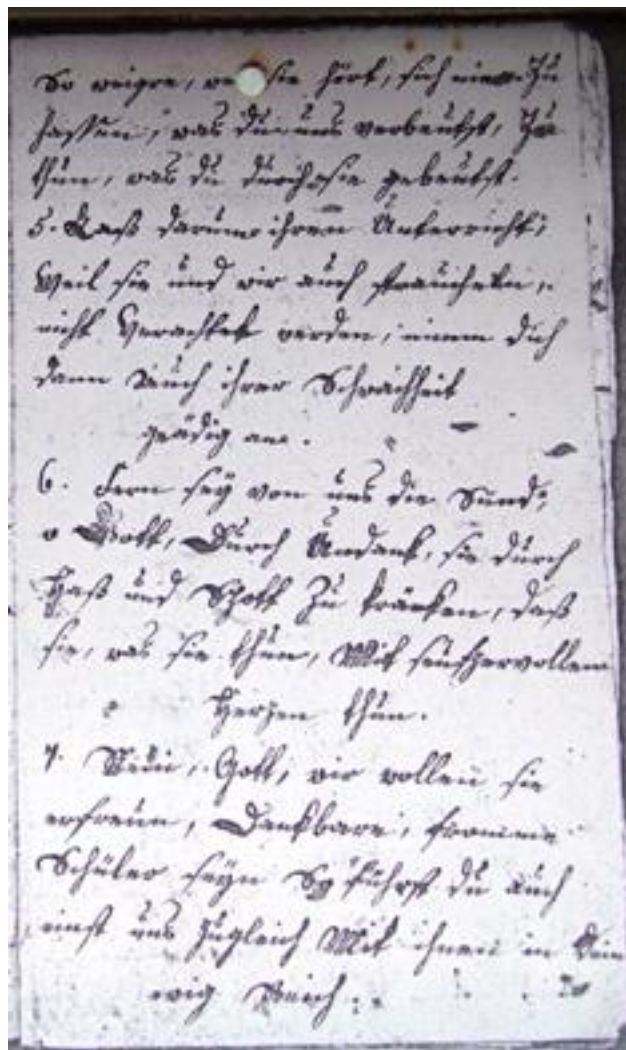 So weigre, wer sie hört, sich nie Zu
hassen, was du uns verbeutst, Zu
thun, was du durch sie gebeutst.
5. Laß darum ihren Unterricht,
Weil sie und wir auch straucheln,
nicht Verachtet werden, nimm dich
dann Auch ihrer Schwachheit
gnädig an.
6. Fern sey von uns die Sünd,
o Gott, Durch Undank, sie durch
Haß und Spott Zu kränken, daß
sie, was sie thun, Mit seufzervollem
Herzen thun.
7. Nein, Gott, wir wollen sie
erfreun, Dankbare, fromme
Schüler seyn So führst du auch
einst uns Zugleich Mit ihnen in dein
ewig Reich.